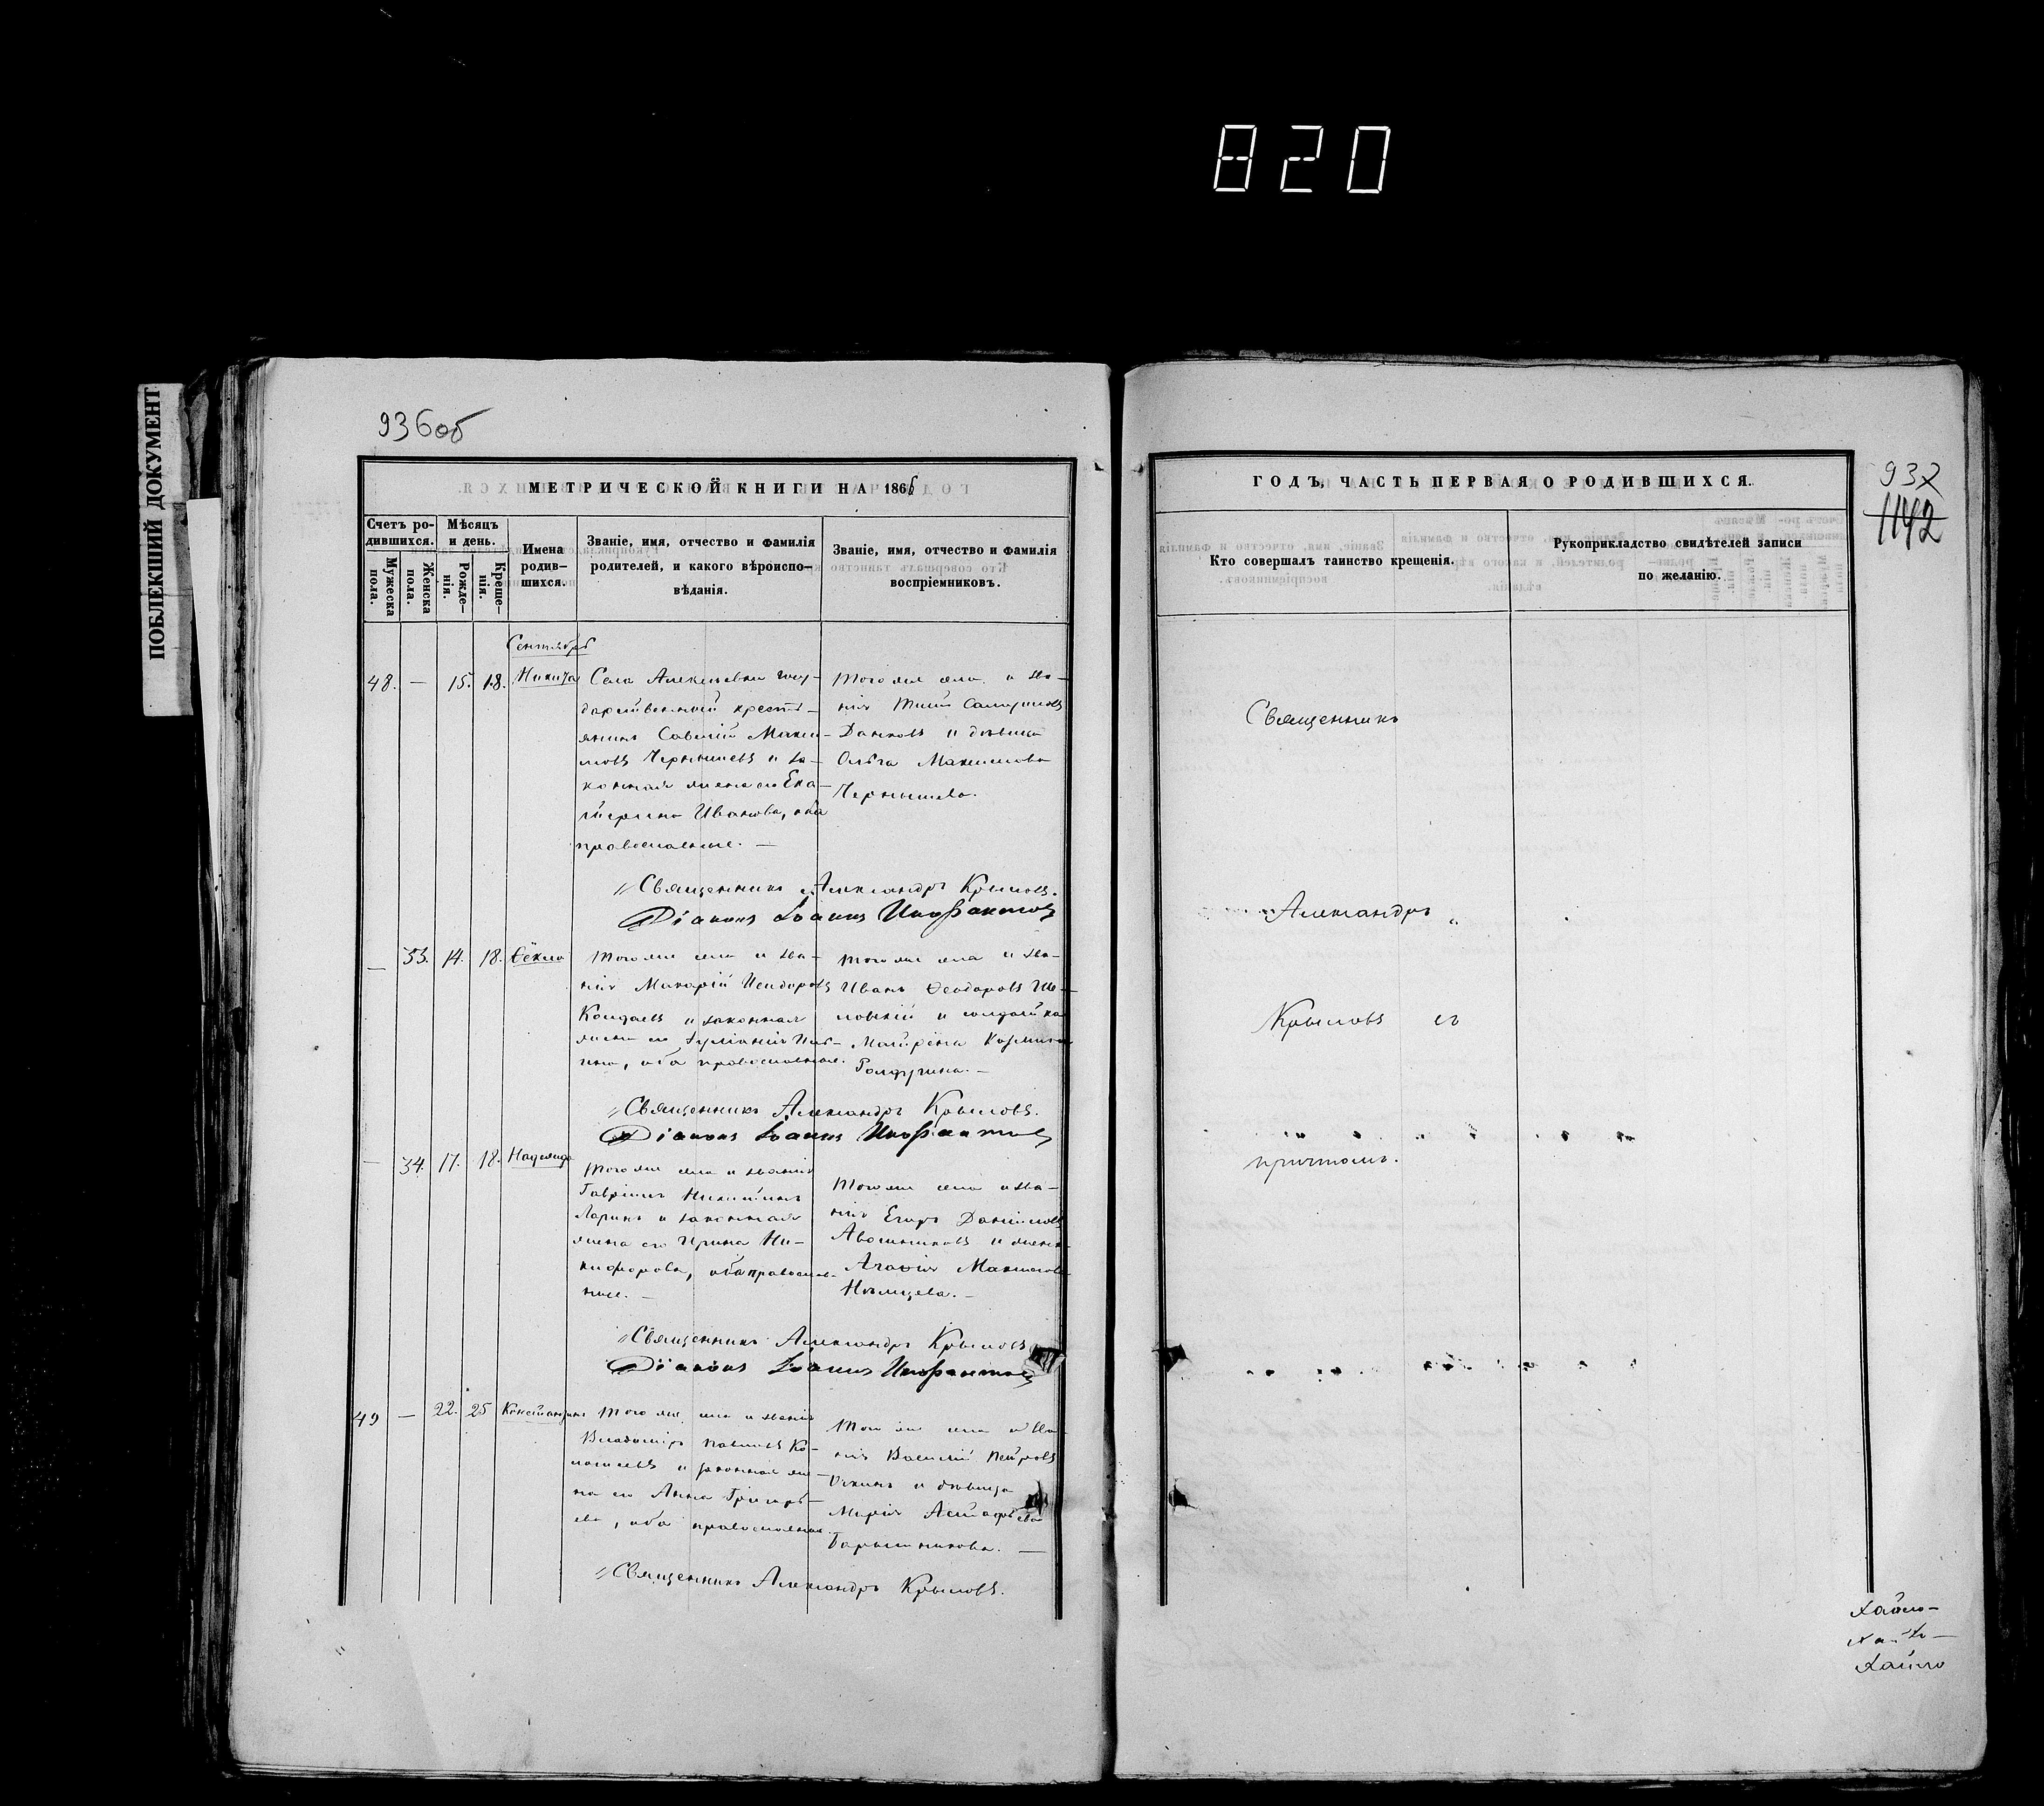 820
ПОБЛЕКШИЙ ДОКУМЕНТ
936об
МЕТРИЧЕСКОЙ КНИГИ НА 1866
Счетъ родившихся.
Мужеска пола.
Женска пола.
Мѣсяцъ и день.
Рожденія.
Крещенія.
Имена родившихся.
Званіе, имя, отчество и фамилія
родителей, и какого вѣроиспо-
вѣданія.
Званіе, имя, отчество и фамилія
воспріемниковъ.
Сентябрь
48. — 15. 18. Никита
Села Алексѣевки госу-
дарственный кресть-
янинъ Савелій Макси-
мовъ Чернышевъ и за-
конная жена его Ека-
терина Иванова, оба
православные. —
Того же села и зва-
нія
Данковъ и дѣвица
Ольга Максимова
Чернышева.
Священникъ Александръ Крыловъ.
Діаконъ Іоаннъ
— 33. 14. 18. Ѳёкла
Того же села и зва-
нія Макарій Исидоровъ
и законная
жена его
оба православные.
Того же села и зва-
нія Иванъ Ѳеодоровъ
и солдатка
Матрёна Козмина
Священникъ Александръ Крыловъ.
Діаконъ Іоаннъ
— 34. 17. 18. Надежда
Того же села и званія
Гавріилъ Никитинъ
Ларинъ и законная
жена его Ирина Ни-
кифорова, оба православ-
ные. —
Того же села и зва-
нія Егоръ Даниловъ
и жена
Агафія Максимова
Нѣмцева. —
Священникъ Александръ Крыловъ
Діаконъ Іоаннъ
49 — 22. 25 Константинъ
Того же села и званія
Владиміръ Павловъ Ко-
и законная же-
на его Анна Григорь-
ева, оба православные.
Того же села и зва-
нія Василій Петровъ
и дѣвица
Марія Астафьева
Барышникова. —
Священникъ Александръ Крыловъ.
ГОДЪ, ЧАСТЬ ПЕРВАЯ О РОДИВШИХСЯ.
937
1142
Кто совершалъ таинство крещенія.
Рукоприкладство свидѣтелей записи
по желанію.
Священникъ
Александръ
Крыловъ съ
причтомъ.